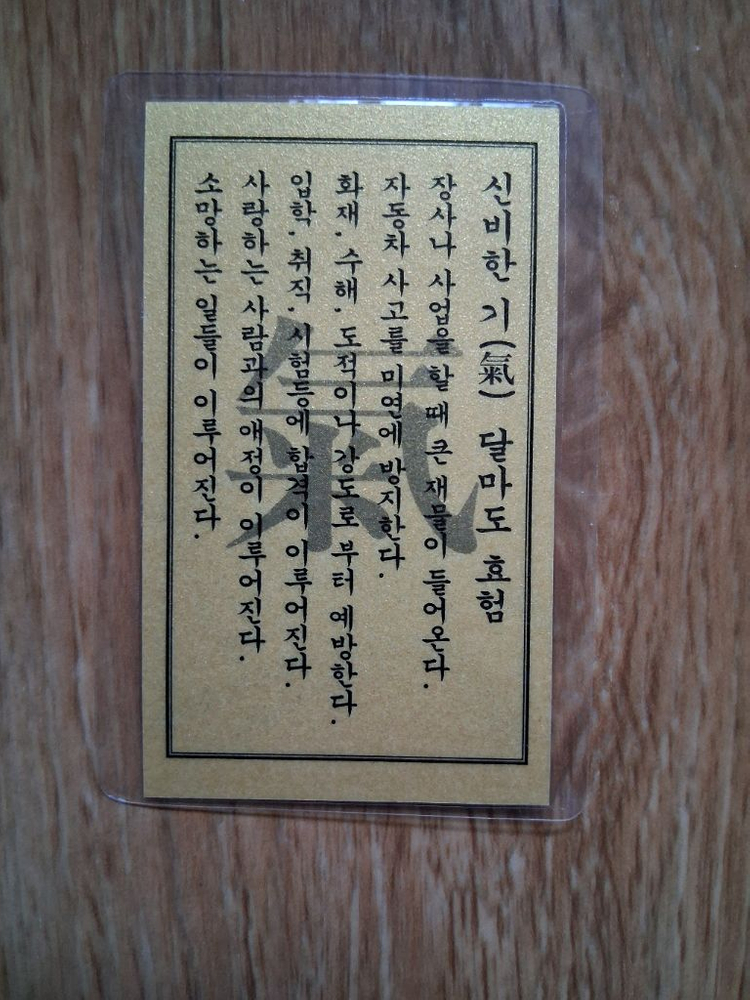 신비한 기(氣) 달마도 효험
장사나 사업을 할 때 큰 재물이 들어온다.
자동차 사고를 미연에 방지한다.
화재. 수해. 도적이나 강도로 부터 예방한다.
입학. 취직. 시험등에 합격이 이루어진다.
사랑하는 사람과의 애정이 이루어진다.
소망하는 일들이 이루어진다.
氣